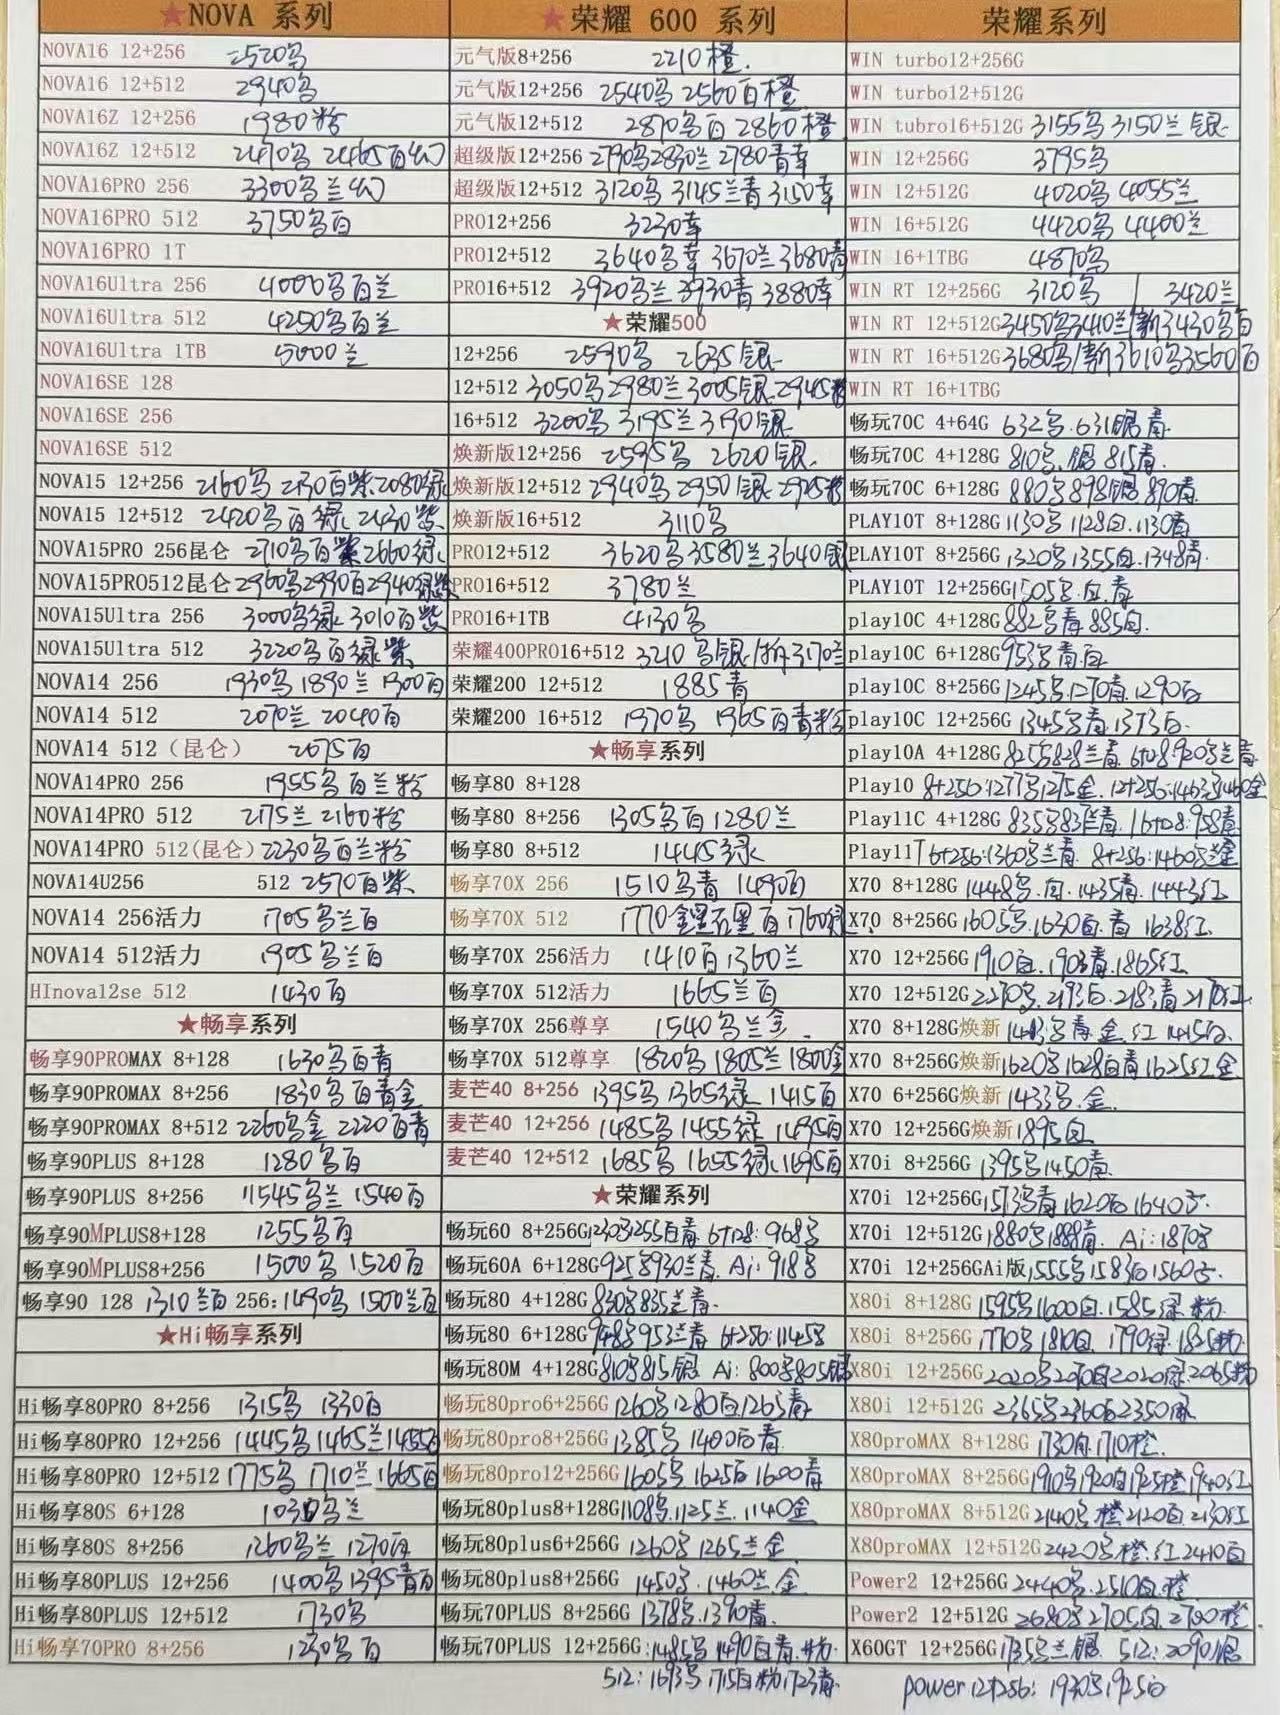 ★NOVA 系列
NOVA16 12+256 2520乌
NOVA16 12+512 2940乌
NOVA16Z 12+256 1980粉
NOVA16Z 12+512 2470乌 2465百幻
NOVA16PRO 256 3300乌兰幻
NOVA16PRO 512 3750乌百
NOVA16PRO 1T
NOVA16Ultra 256 4000乌百兰
NOVA16Ultra 512 4250乌百兰
NOVA16Ultra 1TB 5000兰
NOVA16SE 128
NOVA16SE 256
NOVA16SE 512
NOVA15 12+256 2160乌 2130百紫2080绿
NOVA15 12+512 2420乌百绿 2430紫
NOVA15PRO 256昆仑 2710乌百紫2660绿
NOVA15PRO512昆仑 2960乌2990百2940绿紫
NOVA15Ultra 256 3000乌绿 3010百紫
NOVA15Ultra 512 3220乌百绿紫
NOVA14 256 1930乌 1890兰 1900百
NOVA14 512 2070兰 2040百
NOVA14 512（昆仑） 2075百
NOVA14PRO 256 1955乌百兰粉
NOVA14PRO 512 2175兰 2160粉
NOVA14PRO 512(昆仑) 2230乌百兰粉
NOVA14U256 512 2570百紫
NOVA14 256活力 1705乌兰百
NOVA14 512活力 1905乌兰百
HInova12se 512 1430百
★畅享系列
畅享90PROMAX 8+128 1630乌百青
畅享90PROMAX 8+256 1830乌百青金
畅享90PROMAX 8+512 2260乌金 2220百青
畅享90PLUS 8+128 1280乌百
畅享90PLUS 8+256 1545乌兰 1540百
畅享90MPLUS8+128 1255乌百
畅享90MPLUS8+256 1500乌 1520百
畅享90 128 1310兰百 256:1490乌 1500兰百
★Hi畅享系列
Hi畅享80PRO 8+256 1315乌 1330百
Hi畅享80PRO 12+256 1445乌1465兰1455百
Hi畅享80PRO 12+512 1775乌 1710兰 1665百
Hi畅享80S 6+128 1030乌兰
Hi畅享80S 8+256 1260乌兰 1270百
Hi畅享80PLUS 12+256 1400乌1395青百
Hi畅享80PLUS 12+512 1730乌
Hi畅享70PRO 8+256 1230乌百
★荣耀 600 系列
元气版8+256 2210橙.
元气版12+256 2540乌 2560百橙
元气版12+512 2870乌百 2860橙
超级版12+256 2790乌2830兰 2780青幸
超级版12+512 3120乌 3145兰青 3150幸
PRO12+256 3230幸
PRO12+512 3640乌幸 3670兰 3680青
PRO16+512 3920乌兰 3930青 3880幸
★荣耀500
12+256 2590乌 2635银
12+512 3050乌2980兰3005银2945粉
16+512 3200乌 3195兰3190银
焕新版12+256 2595乌 2620银
焕新版12+512 2940乌2950银2925粉
焕新版16+512 3110乌
PRO12+512 3620乌3580兰3640银
PRO16+512 3780兰
PRO16+1TB 4130乌
荣耀400PRO16+512 3210乌银/拆3170兰
荣耀200 12+512 1885青
荣耀200 16+512 1970乌 1965百青粉
★畅享系列
畅享80 8+128
畅享80 8+256 1305乌百1280兰
畅享80 8+512 1445绿
畅享70X 256 1510乌青 1490百
畅享70X 512 1770金墨石墨百1760绿
畅享70X 256活力 1410百1360兰
畅享70X 512活力 1665兰百
畅享70X 256尊享 1540乌兰金
畅享70X 512尊享 1820乌 1805兰1800金
麦芒40 8+256 1395乌1365绿 1415百
麦芒40 12+256 1485乌1455绿 1495百
麦芒40 12+512 1685乌 1655绿1695百
★荣耀系列
畅玩60 8+256G1230乌1255百青 6+128:968乌
畅玩60A 6+128G925乌930兰青. Ai:918乌
畅玩80 4+128G830乌835兰青.
畅玩80 6+128G948乌953兰青 6+256:1145乌
畅玩80M 4+128G810乌815银 Ai:800乌805银
畅玩80pro6+256G 1260乌1280百.1265青
畅玩80pro8+256G1385乌 1400百青
畅玩80pro12+256G1605乌 1625百1600青
畅玩80plus8+128G1108乌.1125兰.1140金
畅玩80plus6+256G 1260乌 1265兰金
畅玩80plus8+256G 1450乌.1460兰.金
畅玩70PLUS 8+256G 1378乌.1390青.
畅玩70PLUS 12+256G:1485乌1490白青.粉
512:1693乌1715白粉1723青.
荣耀系列
WIN turbo12+256G
WIN turbo12+512G
WIN tubro16+512G 3155乌 3150兰 银
WIN 12+256G 3795乌
WIN 12+512G 4020乌 4055兰
WIN 16+512G 4420乌 4400兰
WIN 16+1TBG 4870乌
WIN RT 12+256G 3120乌 | 3420兰
WIN RT 12+512G3450乌3410兰/新3430乌百
WIN RT 16+512G3680乌/新3610乌3560百
WIN RT 16+1TBG
畅玩70C 4+64G 632乌.631银青.
畅玩70C 4+128G 810乌.银815青.
畅玩70C 6+128G 880乌898银890青.
PLAY10T 8+128G1130乌1128白.1130青
PLAY10T 8+256G1320乌1355白.1348青.
PLAY10T 12+256G1505乌.白.青
play10C 4+128G882乌青885白.
play10C 6+128G953乌青.白
play10C 8+256G1245乌.1270青.1290白
play10C 12+256G 1345乌青.1373白.
play10A 4+128G825乌828兰青. 6+128:920乌兰青
Play10 8+256:1277乌1275金. 12+256:1463乌1460金
Play11C 4+128G 835乌青. 6+128:958青
Play11T6+256:1360乌兰青. 8+256:1460乌兰金
X70 8+128G1448乌.白.1435青.1443红
X70 8+256G1605乌.1630白.青 1638红.
X70 12+256G 1910白.1903青.1865红
X70 12+512G2270乌.2193白.2183青 2170红
X70 8+128G焕新 1413乌青.金.红 1415白.
X70 8+256G焕新1620乌1628白青1625红金
X70 6+256G焕新 1433乌.金.
X70 12+256G焕新1895白
X70i 8+256G 1395乌1450青.
X70i 12+256G1573乌青1620白1640紫.
X70i 12+512G1880乌1888青. Ai:1870乌
X70i 12+256GAi版1555乌1583白1560紫.
X80i 8+128G1595乌1600白.1585绿.粉
X80i 8+256G 1770乌1810白 1790绿.1825粉
X80i 12+256G2020乌2070白2020绿2065粉
X80i 12+512G 2365乌2360白2350绿
X80proMAX 8+128G 1730白.1710橙.
X80proMAX 8+256G1910乌1920白1925橙1940红
X80proMAX 8+512G2140乌.橙2120白.2130红
X80proMAX 12+512G2420乌橙.红2410白
Power2 12+256G 2440乌.2510白.橙
Power2 12+512G 2680乌2705白.2700橙.
X60GT 12+256G1735乌兰银 512:2090银
power12+256:1930乌.1925白